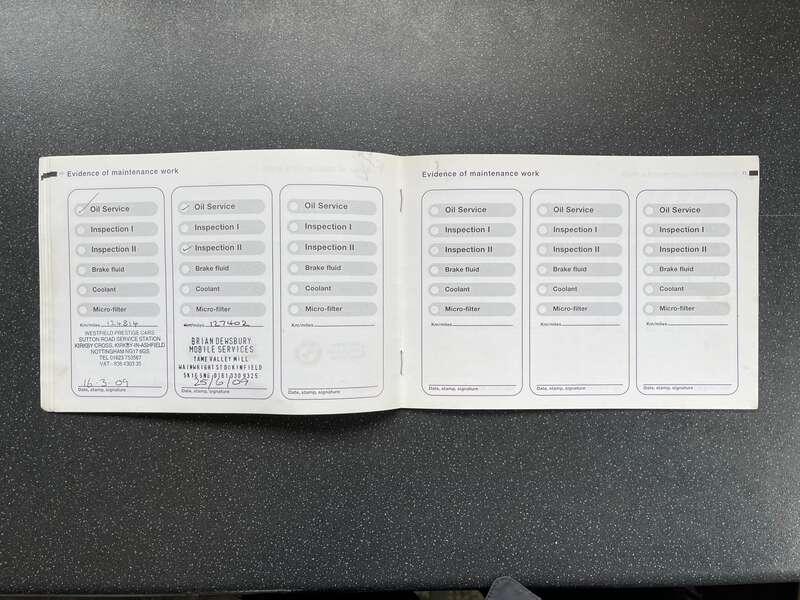 Evidence of maintenance work
Oil Service
Inspection I
Inspection II
Brake fluid
Coolant
Micro-filter
Km/miles 124814
WESTFIELD PRESTIGE CARS
SUTTON ROAD SERVICE STATION
KIRKBY CROSS, KIRKBY-IN-ASHFIELD
NOTTINGHAM NG17
TEL 01623
VAT -
16.3.09
Date, stamp, signature
Oil Service
Inspection I
Inspection II
Brake fluid
Coolant
Micro-filter
Km/miles 127402
BRIAN DEWSBURY
MOBILE SERVICES
TAME VALLEY MILL
WAINWRIGHT ST DUKINFIELD
SK16 5NG 0161 330 9325
25/6/09
Date, stamp, signature
Oil Service
Inspection I
Inspection II
Brake fluid
Coolant
Micro-filter
Km/miles
Date, stamp, signature
Evidence of maintenance work
Oil Service
Inspection I
Inspection II
Brake fluid
Coolant
Micro-filter
Km/miles
Date, stamp, signature
Oil Service
Inspection I
Inspection II
Brake fluid
Coolant
Micro-filter
Km/miles
Date, stamp, signature
Oil Service
Inspection I
Inspection II
Brake fluid
Coolant
Micro-filter
Km/miles
Date, stamp, signature